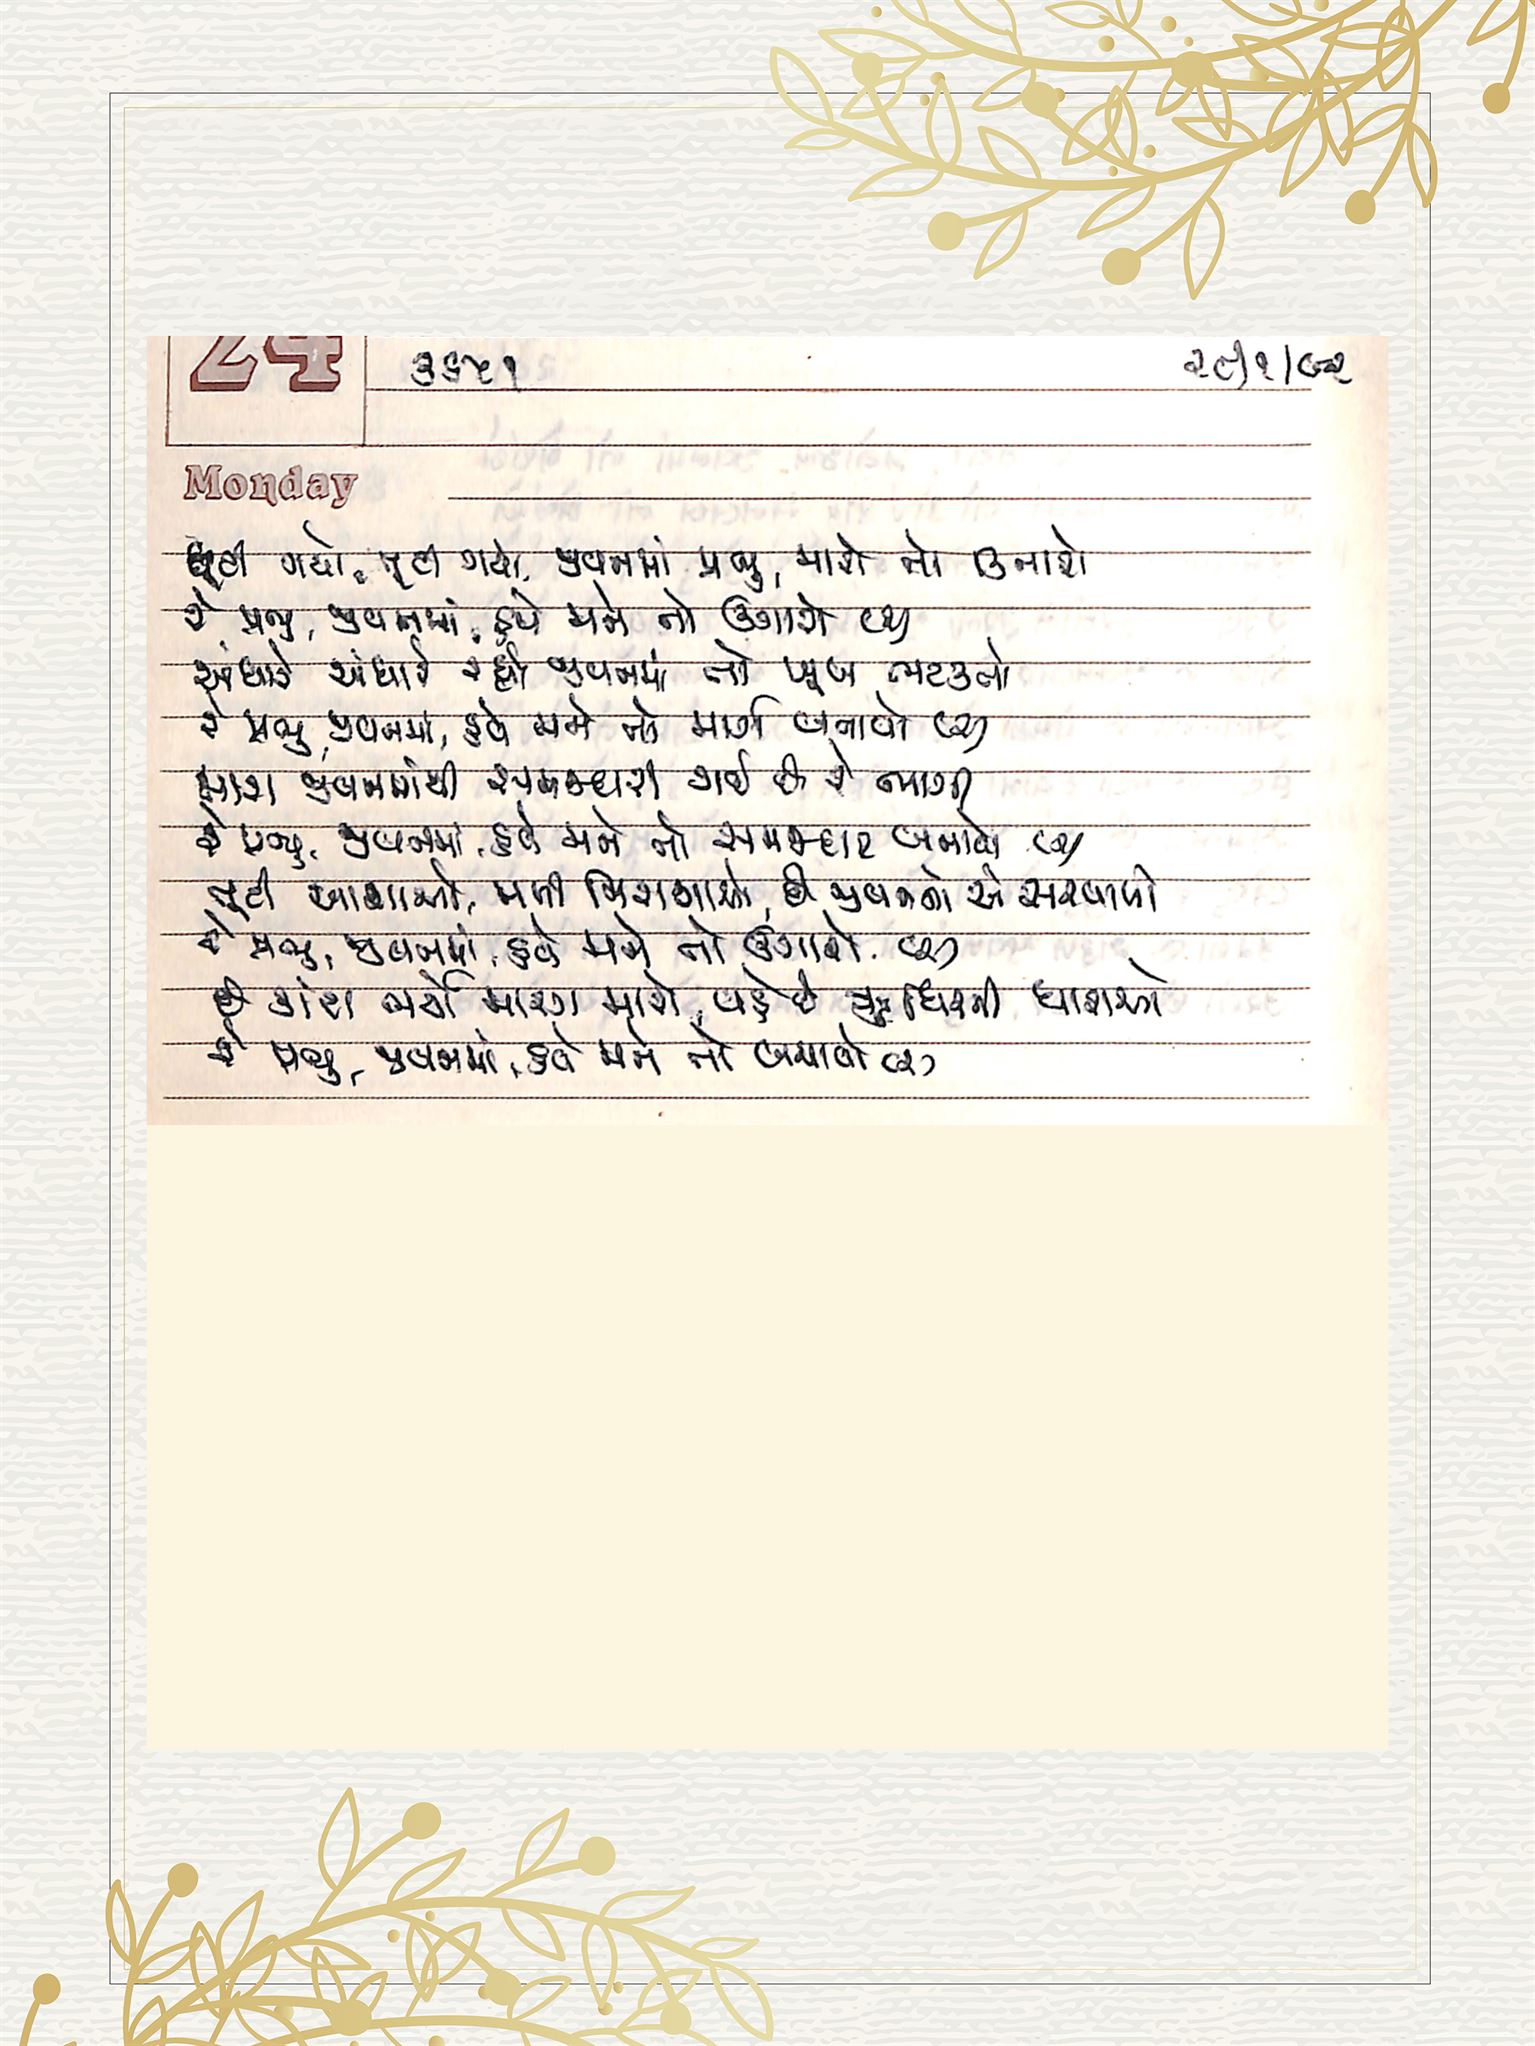 24 ૩૬૫૧ ૨૯/૧/૯૨
Monday
છૂટી ગયો, તૂટી ગયો, જીવનમાં પ્રભુ, મારો તો કિનારો
રે પ્રભુ, જીવનમાં, હવે મને તો ઉગારો (૨)
અંધારે અંધારે રહ્યો જીવનમાં તો ખૂબ ભટકતો
રે પ્રભુ, જીવનમાં, હવે મને તો માર્ગ બતાવો (૨)
મારા જીવનમાંથી સમજદારી ગઈ છે રે ભાગી
રે પ્રભુ, જીવનમાં, હવે મને તો સમજદાર બનાવો (૨)
તૂટી આશાઓ, મળી નિરાશાઓ, છે જીવનનો એ સરવાળો
રે પ્રભુ, જીવનમાં, હવે મને તો ઉગારો (૨)
છે કાંટા ભર્યો મારગ મારો, વહે છે રુધિરની ધારાઓ
રે પ્રભુ, જીવનમાં, હવે મને તો બચાવો (૨)